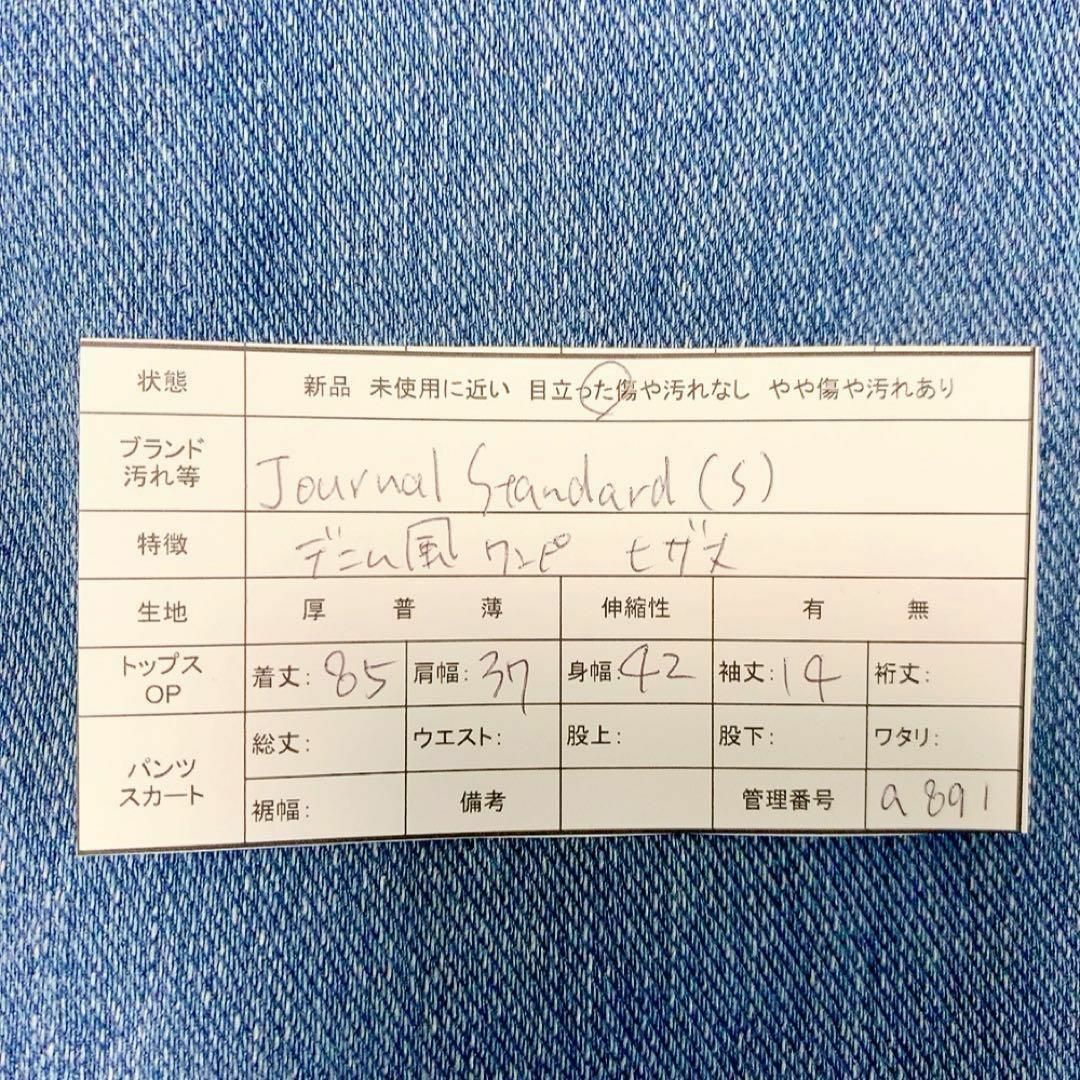 状態 新品 未使用に近い 目立った傷や汚れなし やや傷や汚れあり
ブランド
汚れ等
Journal Standard (S)
特徴 デニム風 ワンピ ヒザ丈
生地 厚 普 薄 伸縮性 有 無
トップス
OP
着丈: 85 肩幅: 37 身幅: 42 袖丈: 14 裄丈:
パンツ
スカート
総丈: ウエスト: 股上: 股下: ワタリ:
裾幅: 備考 管理番号 a891